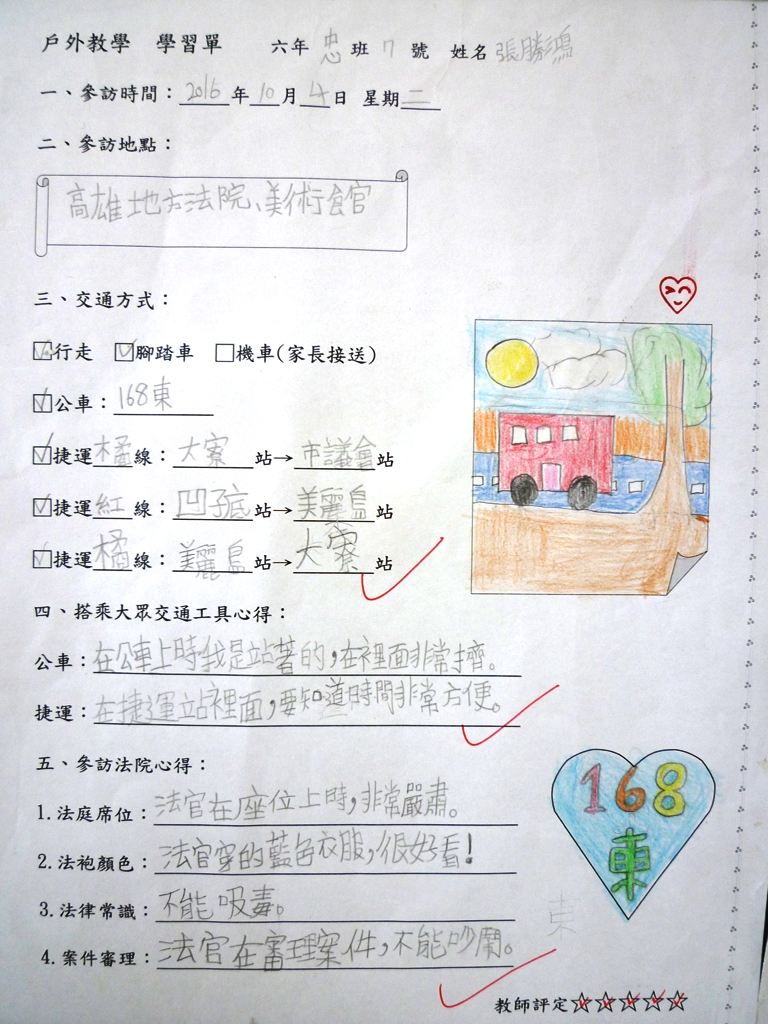 戶外教學 學習單 六年忠班7號 姓名張勝鴻
一、參訪時間：2016年10月4日 星期二
二、參訪地點：
高雄地方法院、美術館
三、交通方式：
☑行走 ☑腳踏車 □機車(家長接送)
☑公車：168東
☑捷運橘線：大寮站→市議會站
☑捷運紅線：凹子底站→美麗島站
☑捷運橘線：美麗島站→大寮站
四、搭乘大眾交通工具心得：
公車：在公車上時我是站著的，在裡面非常擠。
捷運：在捷運站裡面，要知道時間非常方便。
五、參訪法院心得：
1.法庭席位：法官在座位上時，非常嚴肅。
2.法袍顏色：法官穿的藍色衣服，很好看！
3.法律常識：不能吸毒。
4.案件審理：法官在審理案件，不能吵鬧。
168
東
東
教師評定☆☆☆☆☆